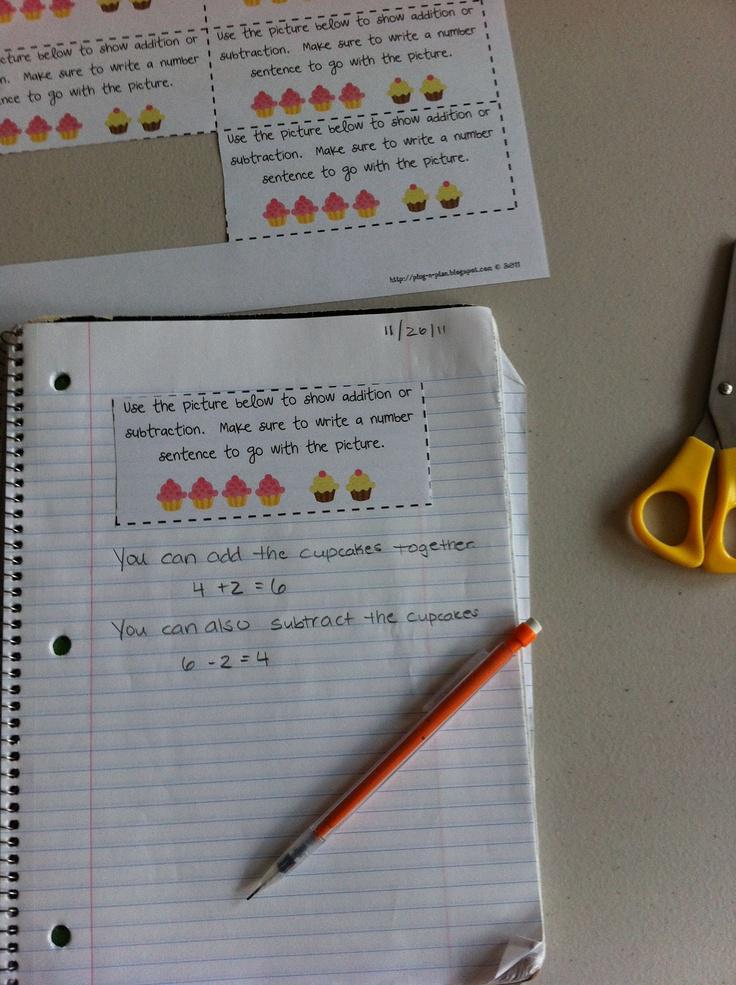 cture below to show addition or
n. Make sure to write a number
nce to go with the picture.
Use the picture below to show addition or
subtraction. Make sure to write a number
sentence to go with the picture.
Use the picture below to show addition or
subtraction. Make sure to write a number
sentence to go with the picture.
http://plug-n-plan.blogspot.com © 2011
11/26/11
Use the picture below to show addition or
subtraction. Make sure to write a number
sentence to go with the picture.
You can add the cupcakes together.
4 + 2 = 6
You can also subtract the cupcakes
6 - 2 = 4